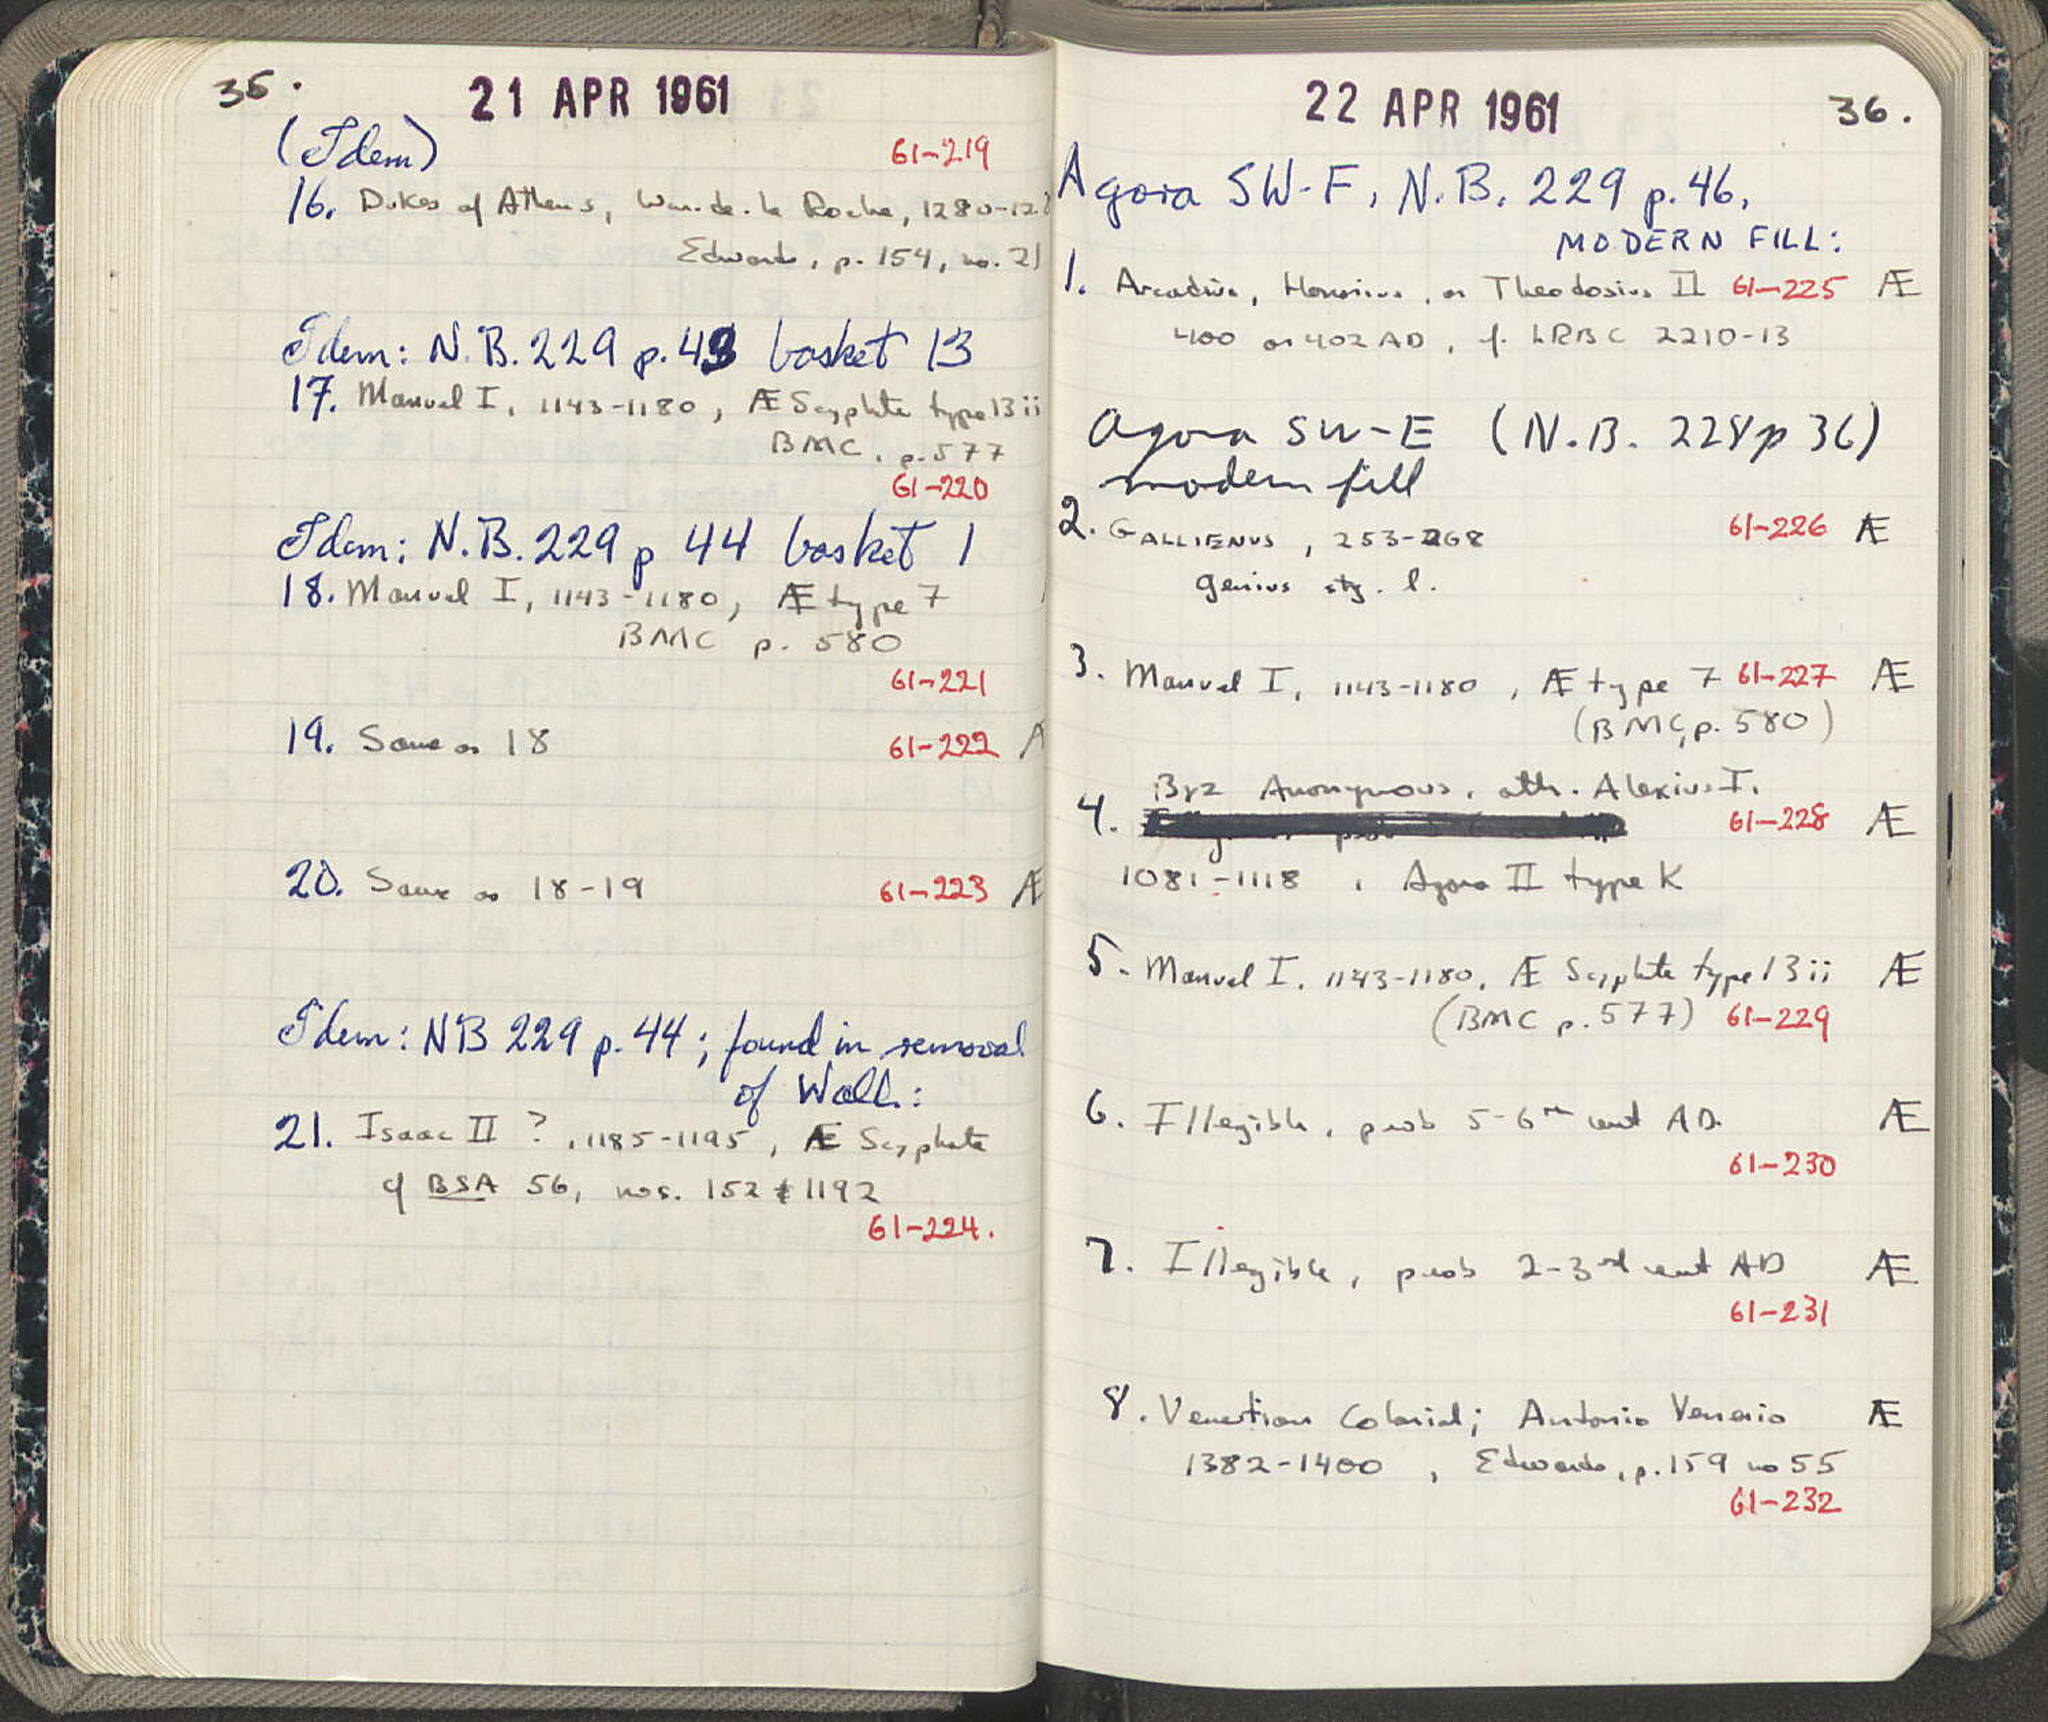 35.
21 APR 1961
(Idem)
61-219
16. Dukes of Athens, Wm. de. la Roche, 1280-128
Edwards, p. 154, no. 21
Idem: N.B. 229 p. 43 basket 13
17. Manuel I, 1143-1180, Æ Scyphate type 13 ii
BMC, p. 577
61-220
Idem: N.B. 229 p 44 basket 1
18. Manuel I, 1143-1180, Æ type 7
BMC p. 580
61-221
19. Same as 18 61-222 Æ
20. Same as 18-19 61-223 Æ
Idem: NB 229 p. 44; found in removal
of Wall:
21. Isaac II ?, 1185-1195, Æ Scyphate
cf BSA 56, nos. 152 & 1192
61-224.
22 APR 1961
36.
Agora SW-F, N.B. 229 p. 46,
MODERN FILL:
1. Arcadius, Honorius, or Theodosius II 61-225 Æ
400 or 402 AD, cf. LRBC 2210-13
Agora SW-E (N.B. 228 p 36)
modern fill
2. GALLIENUS, 253-268 61-226 Æ
Genius stg. l.
3. Manuel I, 1143-1180, Æ type 7 61-227 Æ
(BMC, p. 580)
Byz Anonymous, attr. Alexius I.
4. 61-228 Æ
1081-1118, Agora II type K
5. Manuel I, 1143-1180, Æ Scyphate type 13 ii Æ
(BMC p. 577) 61-229
6. Illegible, prob 5-6th cent AD. Æ
61-230
7. Illegible, prob 2-3rd cent AD Æ
61-231
8. Venetian Colonial; Antonio Venerio Æ
1382-1400, Edwards, p. 159 no 55
61-232